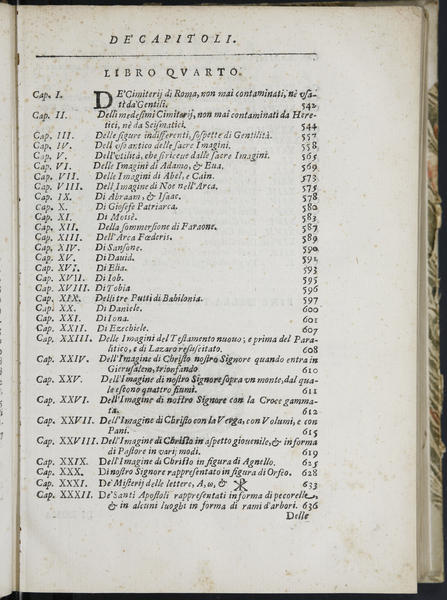 DE' CAPITOLI.
LIBRO QVARTO.
Cap. I. DE' Cimiterij di Roma, non mai contaminati, nè vsa-
ti da Gentili. 542
Cap. II. Delli medesimi Cimiterij, non mai contaminati da Here-
tici, nè da Scismatici. 544
Cap. III. Delle figure indifferenti, sospette di Gentilità. 557
Cap. IV. Dell'vso antico delle sacre Imagini. 558
Cap. V. Dell'vtilità, che si riceue dalle sacre Imagini. 565
Cap. VI. Delle Imagini di Adamo, & Eua. 569
Cap. VII. Delle Imagini di Abel, e Cain. 573
Cap. VIII. Dell'Imagine di Noe nell'Arca. 575
Cap. IX. Di Abraam, & Isaac. 578
Cap. X. Di Giosefe Patriarca. 580
Cap. XI. Di Moisè. 583
Cap. XII. Della sommersione di Faraone. 587
Cap. XIII. Dell'Arca Fœderis. 589
Cap. XIV. Di Sansone. 590
Cap. XV. Di Dauid. 591
Cap. XVI. Di Elia. 593
Cap. XVII. Di Iob. 595
Cap. XVIII. Di Tobia 596
Cap. XIX. Delli tre Putti di Babilonia. 597
Cap. XX. Di Daniele. 600
Cap. XXI. Di Iona. 601
Cap. XXII. Di Ezechiele. 607
Cap. XXIII. Delle Imagini del Testamento nuouo; e prima del Para-
litico, e di Lazaro resuscitato. 608
Cap. XXIV. Dell'Imagine di Christo nostro Signore quando entra in
Gierusalem, trionfando 610
Cap. XXV. Dell'Imagine di nostro Signore sopra vn monte, dal qua-
le escono quattro fiumi. 611
Cap. XXVI. Dell'Imagine di nostro Signore con la Croce gamma-
ta. 612
Cap. XXVII. Dell'Imagine di Christo con la Verga, con Volumi, e con
Pani. 615
Cap. XXVIII. Dell'Imagine di Christo in aspetto giouenile, & in forma
di Pastore in varij modi. 619
Cap. XXIX. Dell'Imagine di Christo in figura di Agnello. 625
Cap. XXX. Di nostro Signore rappresentato in figura di Orfeo. 628
Cap. XXXI. De' Misterij delle lettere, A, ω, & ☧ 633
Cap. XXXII. De' Santi Apostoli rappresentati in forma di pecorelle,
& in alcuni luoghi in forma di rami d'arbori. 636
Delle